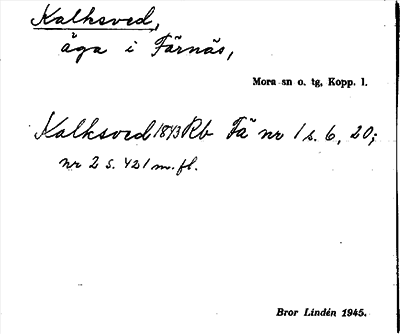 Kalksved,
äga i Färnäs,
Mora sn o. tg, Kopp. l.
Kalksved 1843 Rb Fä nr 1 s. 6, 20;
nr 2 s. 421 m.fl.
Bror Lindén 1945.